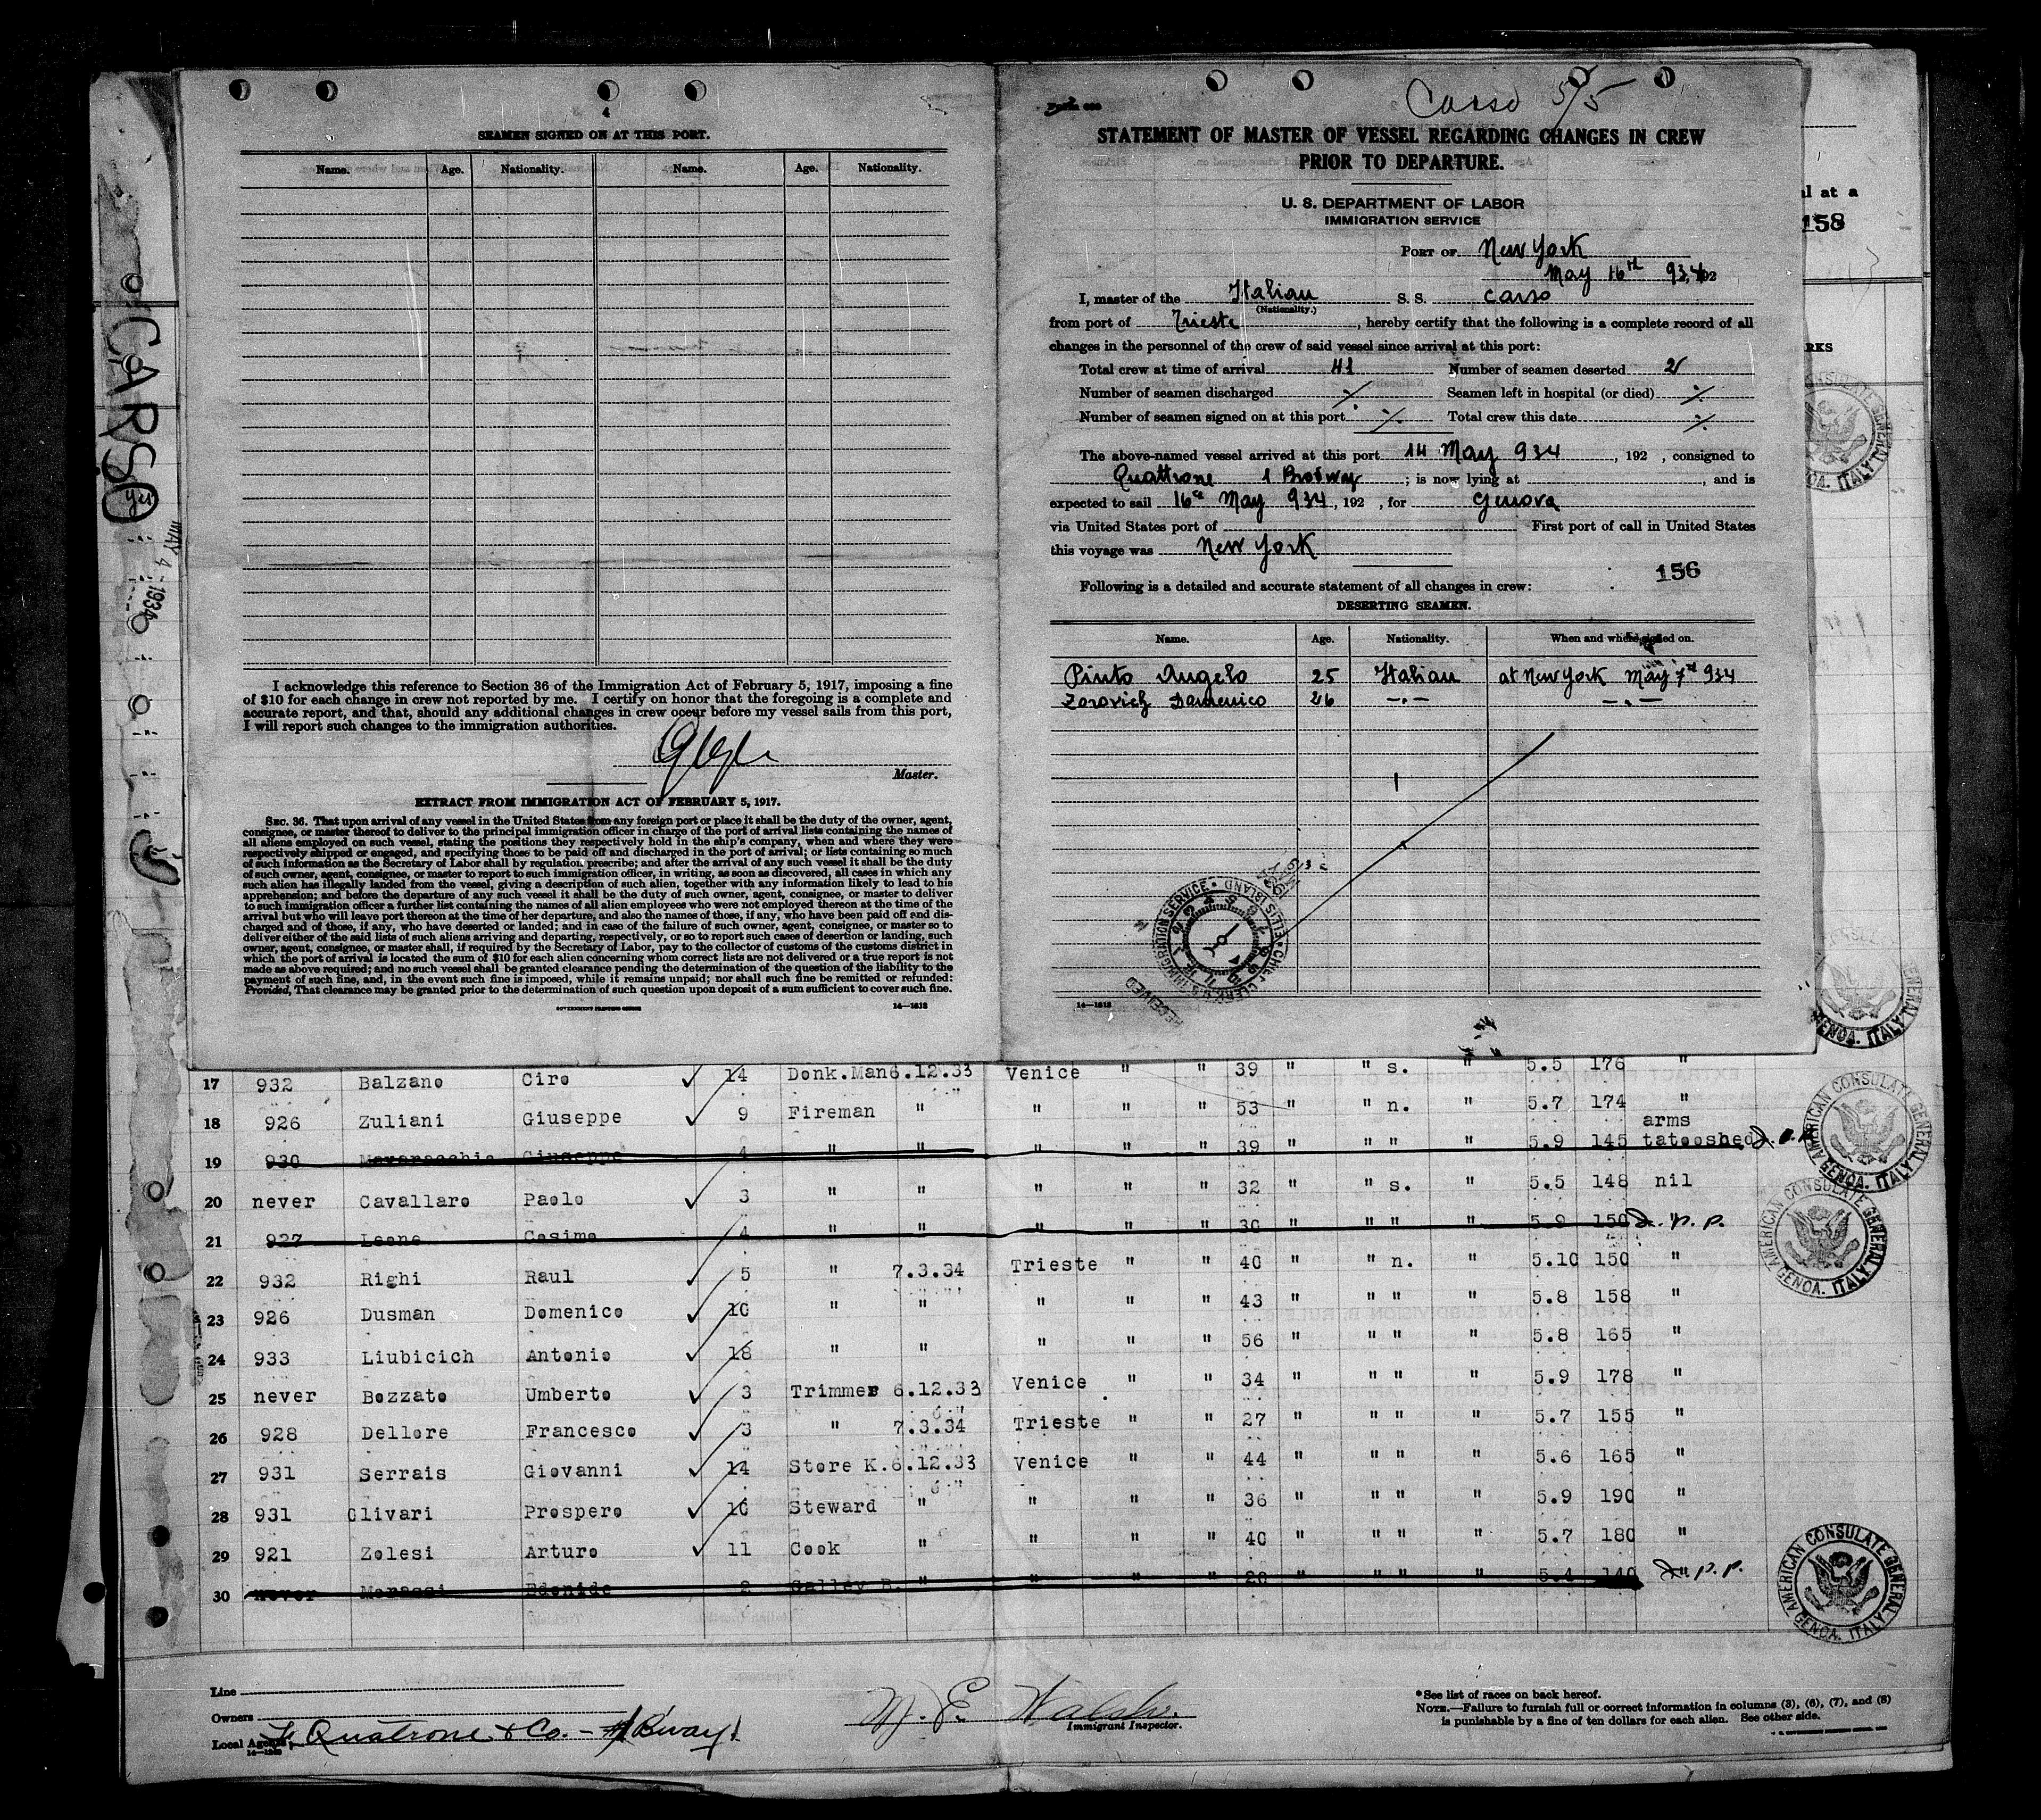 4
SEAMEN SIGNED ON AT THIS PORT.
Name. Age. Nationality. Name. Age. Nationality.
I acknowledge this reference to Section 36 of the Immigration Act of February 5, 1917, imposing a fine
of $10 for each change in crew not reported by me. I certify on honor that the foregoing is a complete and
accurate report, and that, should any additional changes in crew occur before my vessel sails from this port,
I will report such changes to the immigration authorities.
Master.
EXTRACT FROM IMMIGRATION ACT OF FEBRUARY 5, 1917.
SEC. 36. That upon arrival of any vessel in the United States from any foreign port or place it shall be the duty of the owner, agent,
consignee, or master thereof to deliver to the principal immigration officer in charge of the port of arrival lists containing the names of
all aliens employed on such vessel, stating the positions they respectively hold in the ship's company, when and where they were
respectively shipped or engaged, and specifying those to be paid off and discharged in the port of arrival; or lists containing so much
of such information as the Secretary of Labor shall by regulation prescribe; and after the arrival of any such vessel it shall be the duty
of such owner, agent, consignee, or master to report to such immigration officer, in writing, as soon as discovered, all cases in which any
such alien has illegally landed from the vessel, giving a description of such alien, together with any information likely to lead to his
apprehension; and before the departure of any such vessel it shall be the duty of such owner, agent, consignee, or master to deliver
to such immigration officer a further list containing the names of all alien employees who were not employed thereon at the time of the
arrival but who will leave port thereon at the time of her departure, and also the names of those, if any, who have been paid off and dis-
charged and of those, if any, who have deserted or landed; and in case of the failure of such owner, agent, consignee, or master so to
deliver either of the said lists of such aliens arriving and departing, respectively, or so to report such cases of desertion or landing, such
owner, agent, consignee, or master shall, if required by the Secretary of Labor, pay to the collector of customs of the customs district in
which the port of arrival is located the sum of $10 for each alien concerning whom correct lists are not delivered or a true report is not
made as above required; and no such vessel shall be granted clearance pending the determination of the question of the liability to the
payment of such fine, and, in the event such fine is imposed, while it remains unpaid; nor shall such fine be remitted or refunded:
Provided, That clearance may be granted prior to the determination of such question upon deposit of a sum sufficient to cover such fine.
GOVERNMENT PRINTING OFFICE 14—1613
Carso 5/5
STATEMENT OF MASTER OF VESSEL REGARDING CHANGES IN CREW
PRIOR TO DEPARTURE.
U. S. DEPARTMENT OF LABOR
IMMIGRATION SERVICE
PORT OF New York
May 16th 934, 192
I, master of the Italian S. S. Carso
(Nationality.)
from port of Trieste, hereby certify that the following is a complete record of all
changes in the personnel of the crew of said vessel since arrival at this port:
Total crew at time of arrival 41 Number of seamen deserted 2
Number of seamen discharged ⁒ Seamen left in hospital (or died) ⁒
Number of seamen signed on at this port ⁒ Total crew this date ⁒
The above-named vessel arrived at this port 14 May 934, 192 , consigned to
Quattrone 1 Brodway; is now lying at , and is
expected to sail 16th May 934, 192 , for Genova
via United States port of First port of call in United States
this voyage was New York
156
Following is a detailed and accurate statement of all changes in crew:
DESERTING SEAMEN.
Name. Age. Nationality. When and where signed on.
Pinto Angelo 25 Italian at New York May 7th 934
Zorovich Domenico 26 —.— —.—
RECEIVED
CHIEF CLERK U.S. IMMIGRATION SERVICE • ELLIS ISLAND
14—1613
al at a
158
RKS
CARSO
yes
MAY 4 - 1934
17 932 Balzano Ciro ✓ 14 Donk.Man 6.12.33 Venice " " 39 " " s. " 5.5 176 "
18 926 Zuliani Giuseppe ✓ 9 Fireman " " " " 53 " " n. " 5.7 174 "
arms
19 930 Giuseppe 4 " " " " " 39 " " " " 5.9 145 tatooshed
20 never Cavallaro Paolo ✓ 3 " " " " " 32 " " s. " 5.5 148 nil
21 927 Leone Cosimo 4 " " " " " 30 " " " " 5.9 150 " d. p. p.
22 932 Righi Raul ✓ 5 " 7.3.34 Trieste " " 40 " " n. " 5.10 150 "
23 926 Dusman Domenico ✓ 10 " " " " " 43 " " " " 5.8 158 "
24 933 Liubicich Antonio ✓ 18 " " " " " 56 " " " " 5.8 165 "
25 never Bozzato Umberto ✓ 3 Trimmer 6.12.33 Venice " " 34 " " " " 5.9 178 "
26 928 Dellore Francesco ✓ 3 " 7.3.34 Trieste " " 27 " " " " 5.7 155 "
27 931 Serrais Giovanni ✓ 14 Store K. 6.12.33 Venice " " 44 " " " " 5.6 165 "
28 931 Olivari Prospero ✓ 10 Steward " " " " 36 " " " " 5.9 190 "
29 921 Zolesi Arturo ✓ 11 Cook " " " " 40 " " " " 5.7 180 "
30 never Edenide 2 Galley B. " " " " 28 " " " " 5.4 140 " d. p. p.
AMERICAN CONSULATE GENERAL
GENOA. ITALY
AMERICAN CONSULATE GENERAL
GENOA. ITALY
AMERICAN CONSULATE GENERAL
GENOA. ITALY
Line
Owners
Local Agents F. Quatrone & Co. - #1 Bway.
W. E. Walsh.
Immigrant Inspector.
*See list of races on back hereof.
NOTE.—Failure to furnish full or correct information in columns (3), (6), (7), and (8)
is punishable by a fine of ten dollars for each alien. See other side.